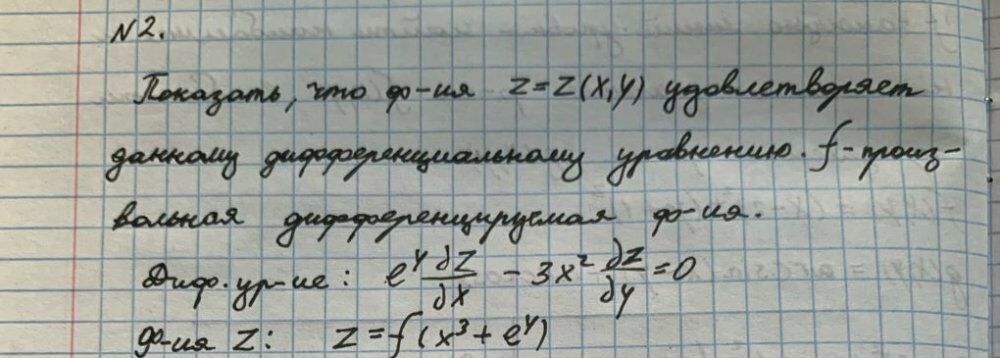 N2.
Показать, что ф-ия z=z(x,y) удовлетворяет
данному дифференциальному уравнению. f-произ-
вольная дифференцируемая ф-ия.
Диф. ур-ие: e^y ∂z/∂x - 3x² ∂z/∂y = 0
Ф-ия z: z=f(x³+e^y)